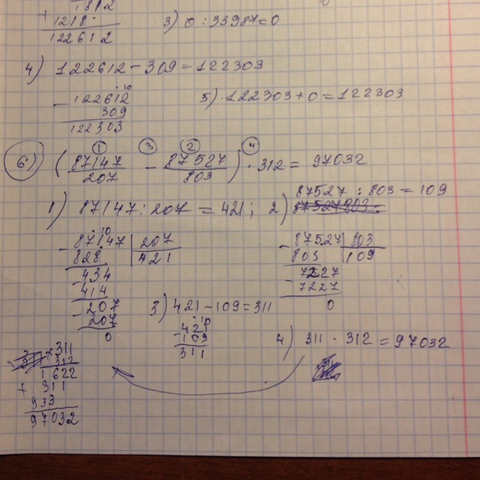 1812
+ 1218
122612
3) 0 : 33987=0
4) 122612 - 309 = 122303
- 122612
309
122303
5) 122303 + 0 = 122303
6) (87147/207 - 87527/803) · 312 = 97032
1) 87147 : 207 = 421; 2) 87527 : 803 = 109
- 87147 | 207
828 | 421
- 434
414
- 207
207
0
- 87527 | 803
803 | 109
- 7227
7227
0
3) 421 - 109 = 311
- 421
109
311
4) 311 · 312 = 97032
× 311
312
+ 1622
311
933
97032